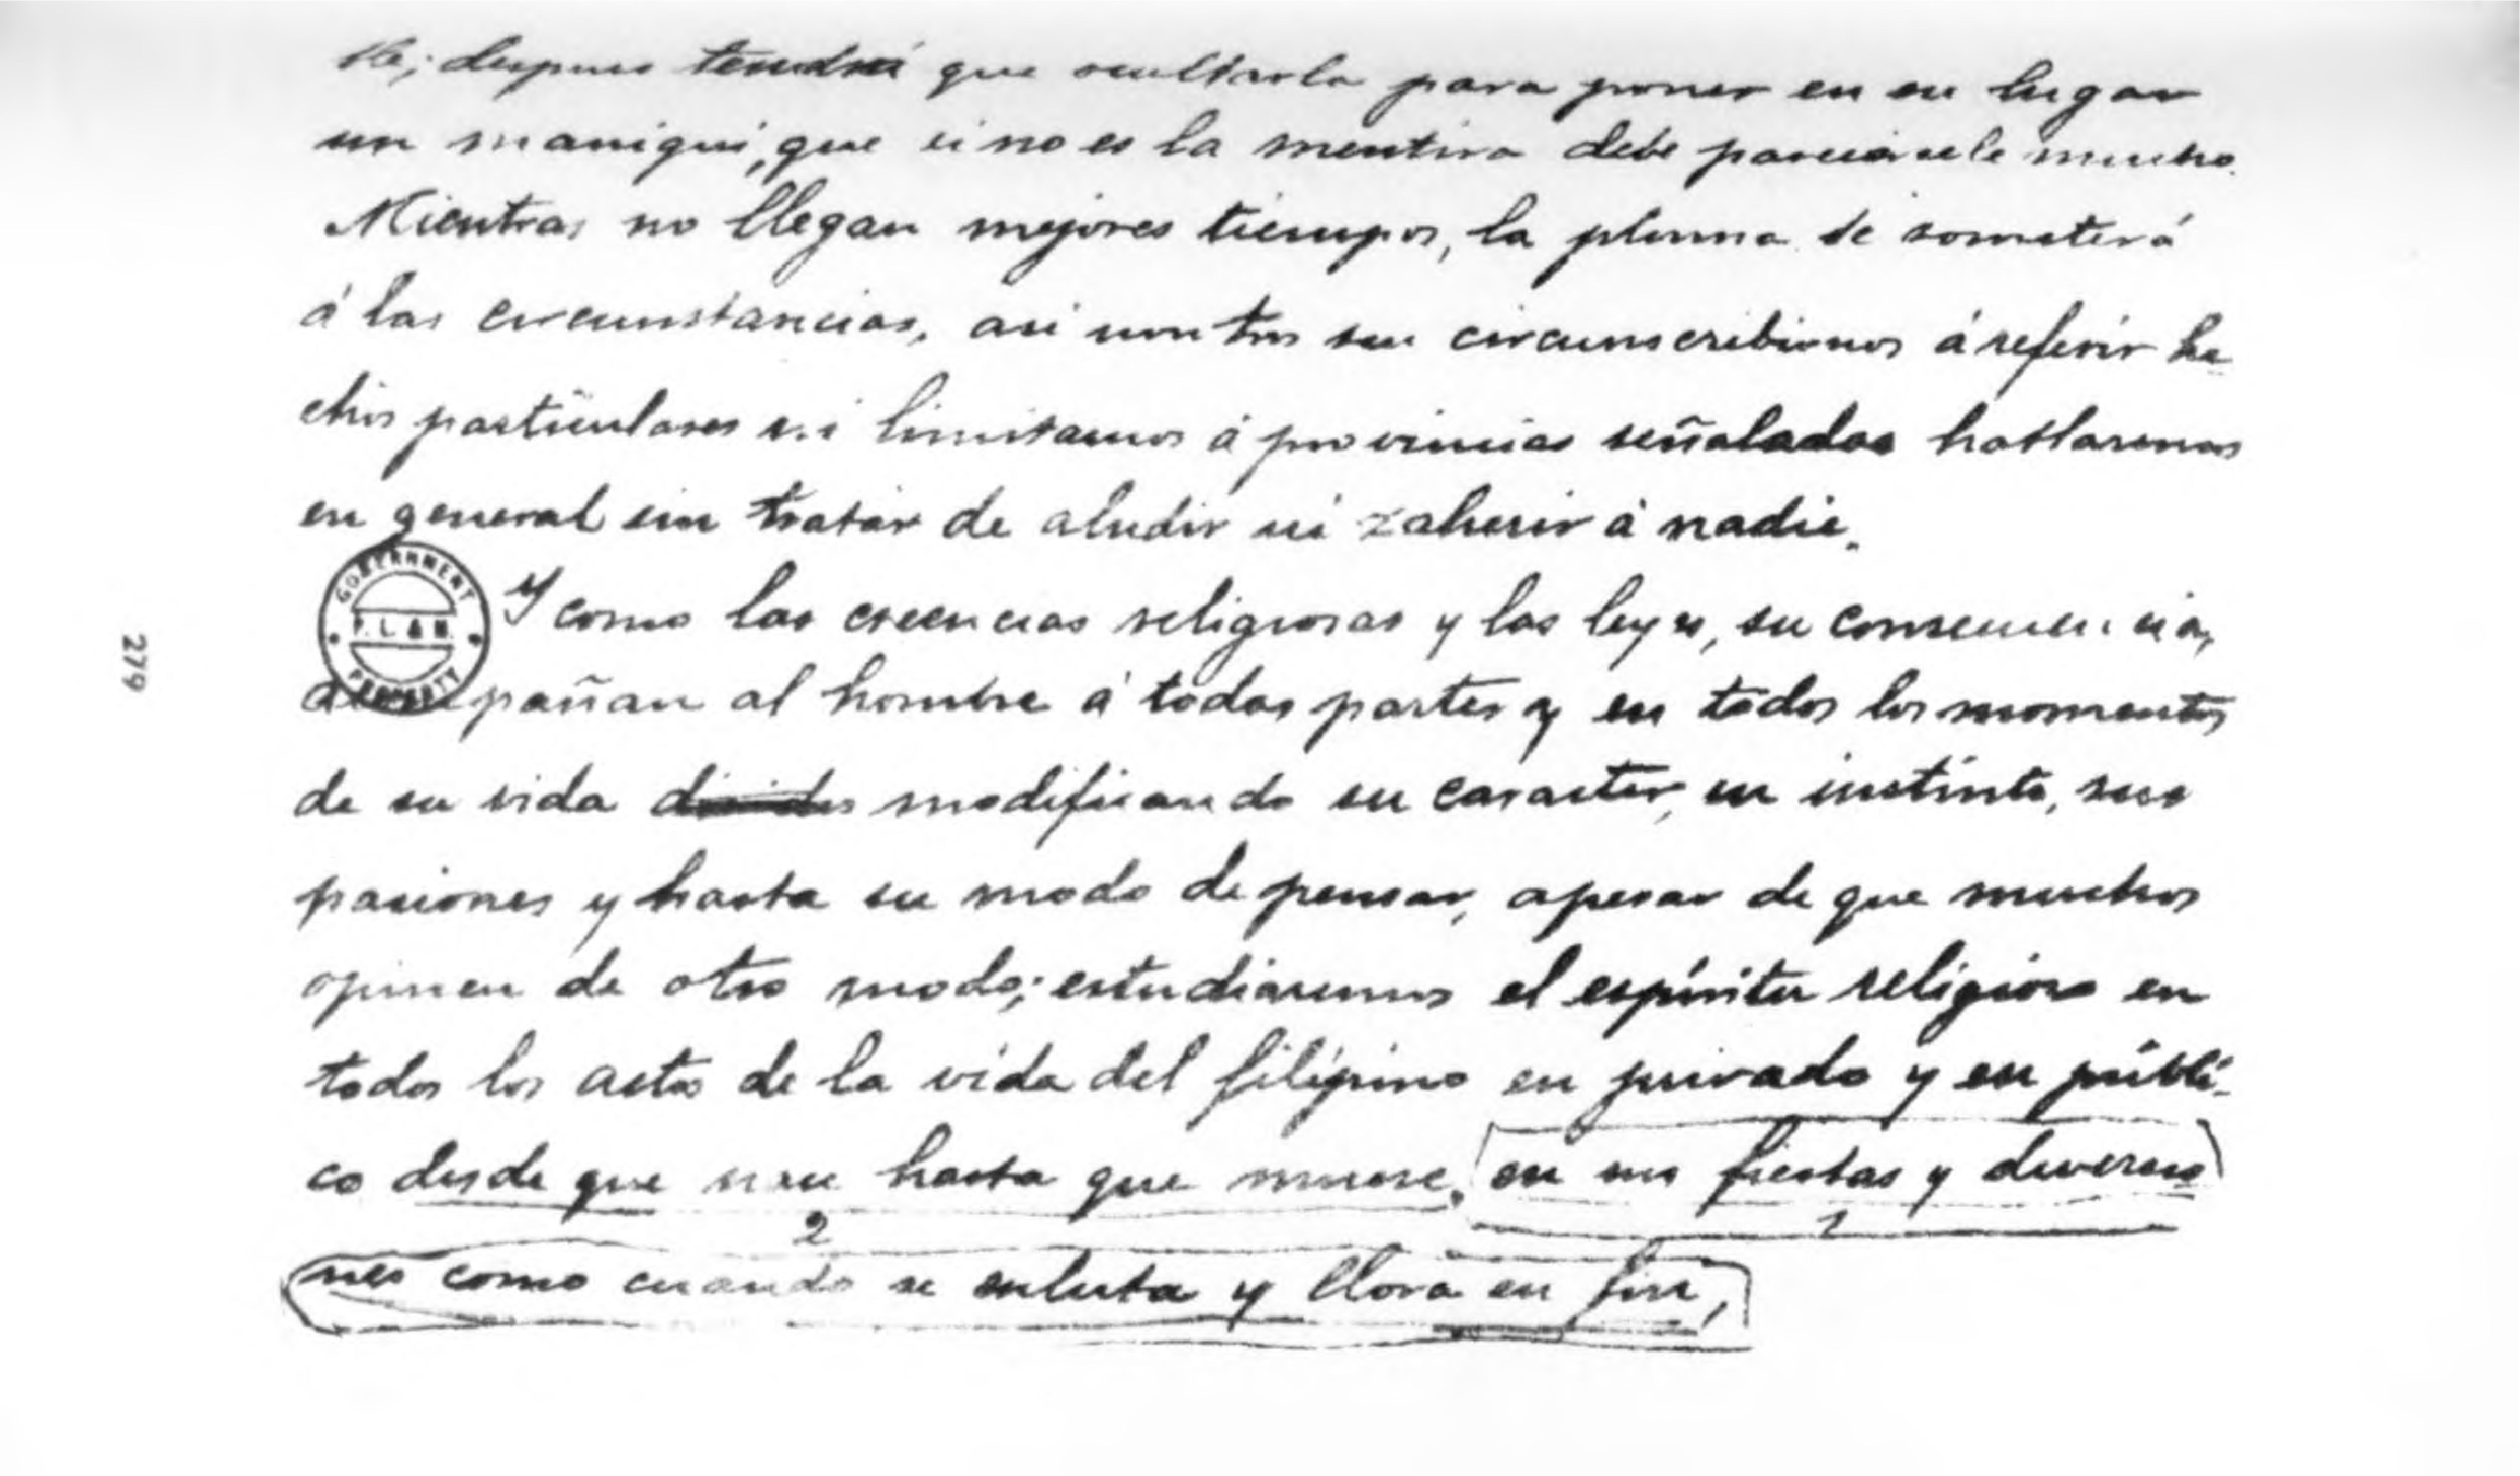 ble; despues tendrá que ocultarla para poner en su lugar
un maniqui, que si no es la mentira debe parecersele mucho.
Mientras no llegan mejores tiempos, la pluma se someterá
á las circunstancias, asi sin circunscribirnos á referir he
chos particulares ni limitarnos á provincias señaladas hablaremos
en general sin tratar de aludir ni zaherir á nadie.
Y como las creencias religiosas y las leyes, su consecuencia,
acompañan al hombre á todas partes y en todos los momentos
de su vida modificando su caracter, su instinto, sus
pasiones y hasta su modo de pensar, apesar de que muchos
opinen de otro modo; estudiaremos el espíritu religioso en
todos los actos de la vida del filipino en privado y en públi-
co desde que nace hasta que muere, en sus fiestas y diversio
2 1
nes como cuando se enluta y llora en fin,
GOVERNMENT
P.L.&M.
PROPERTY
279